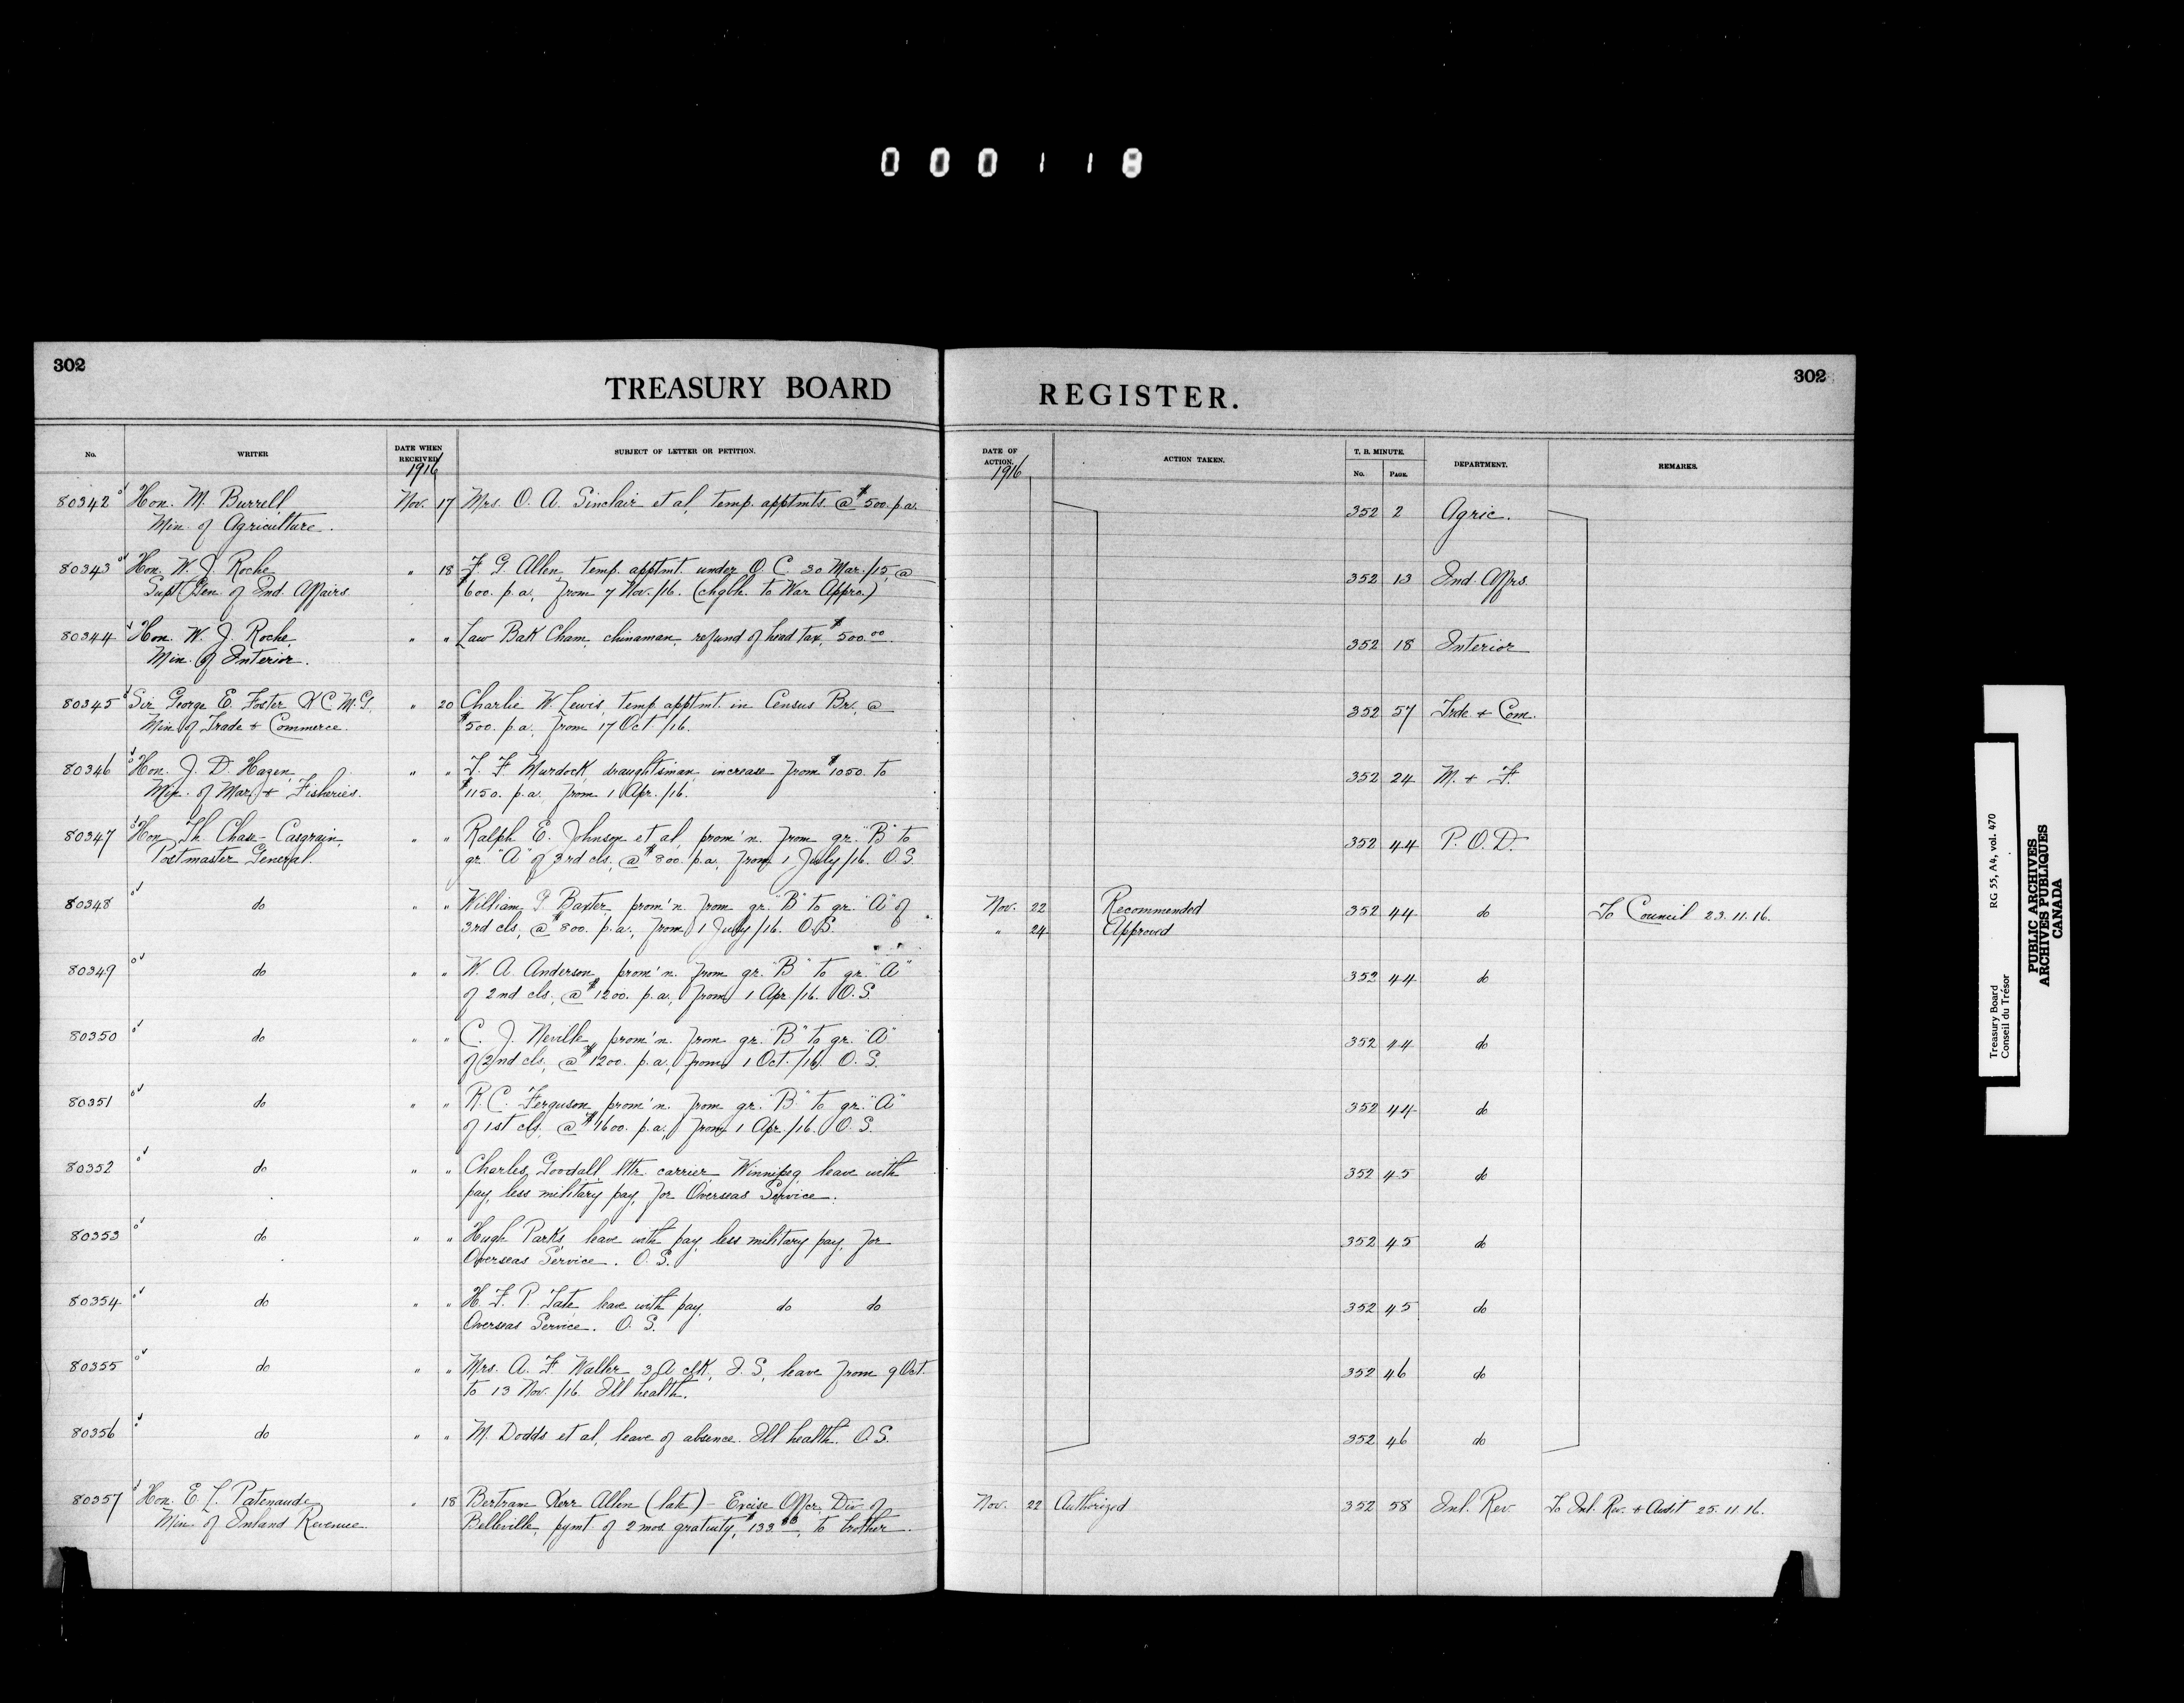 000118
302
302
TREASURY BOARD REGISTER.
No. WRITER DATE WHEN RECEIVED 1916 SUBJECT OF LETTER OR PETITION. DATE OF ACTION. 1916 ACTION TAKEN. T. B. MINUTE. No. PAGE. DEPARTMENT. REMARKS.
80342 Hon. M. Burrell Nov. 17 Mrs. O. A. Sinclair et al, temp. apptmts. @ $500. p.a. 352 2 Agric.
Min. of Agriculture.
80343 Hon. W. J. Roche " 18 F. G. Allen, temp. apptmt. under O. C. 30 Mar./15, @ 352 13 Ind. Affrs.
Supt Gen. of Ind. Affairs $600. p.a., from 7 Nov./16. (chgble. to War Appro.)
80344 Hon. W. J. Roche " " Law Bak Cham, chinaman, refund of head tax, $500.00. 352 18 Interior
Min. of Interior.
80345 Sir George E. Foster K C M.G. " 20 Charlie W. Lewis, temp. apptmt. in Census Br., @ 352 57 Trde. + Com.
Min. of Trade + Commerce. $500. p.a., from 17 Oct /16.
80346 Hon. J. D. Hazen, " " T. F. Murdock, draughtsman, increase from $1050. to 352 24 M. + F.
Min. of Mar. + Fisheries. $1150. p.a., from 1 Apr./16.
80347 Hon. Th. Chase-Casgrain, " " Ralph E. Johnson et al, prom'n. from gr. "B" to 352 44 P. O. D.
Postmaster General. gr. "A" of 3rd cls, @ $800. p.a., from 1 July/16. O.S.
80348 do " " William G. Baxter, prom'n. from gr. "B" to gr. "A" of Nov. 22 Recommended 352 44 do To Council 23.11.16.
3rd cls, @ $800. p.a., from 1 July/16. O.S. " 24 Approved
80349 do " " W. A. Anderson, prom'n. from gr. "B" to gr. "A" 352 44 do
of 2nd cls, @ $1200. p.a., from 1 Apr./16. O.S.
80350 do " " C. J. Neville, prom'n. from gr. "B" to gr. "A" 352 44 do
of 2nd cls, @ $1200. p.a., from 1 Oct./16. O. S.
80351 do " " R. C. Ferguson, prom'n. from gr. "B" to gr. "A" 352 44 do
of 1st cls, @ $1600. p.a., from 1 Apr./16. O. S.
80352 do " " Charles Goodall, lttr. carrier Winnipeg, leave with 352 45 do
pay, less military pay, for Overseas Service.
80353 do " " Hugh Parks leave with pay, less military pay, for 352 45 do
Overseas Service. O. S.
80354 do " " H. F. P. Tate, leave with pay, do do 352 45 do
Overseas Service. O. S.
80355 do " " Mrs. A. F. Walker, 3 A clk, I. S., leave from 9 Oct. 352 46 do
to 13 Nov./16. Ill health.
80356 do " " M. Dodds et al, leave of absence. Ill health. O.S. 352 46 do
80357 Hon. E. L. Patenaude " 18 Bertram Kerr Allen (late) - Excise Offcr. Div. of Nov. 22 Authorized 352 58 Inl. Rev. To Inl. Rev. + Audit 25.11.16.
Min. of Inland Revenue. Belleville, pymt. of 2 mos. gratuity, $133, to brother.
Treasury Board RG 55, A4, vol. 470
Conseil du Trésor
PUBLIC ARCHIVES
ARCHIVES PUBLIQUES
CANADA